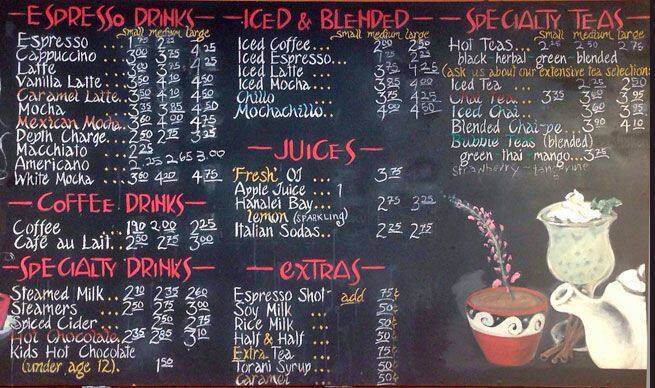 ESPRESSO DRINKS
small medium large
Espresso ...
Cappuccino ... 3.00 3.75 4.25
Latte ...
Vanilla Latte ...
Caramel Latte ...
Mocha ... 3.35 3.85 4.50
Mexican Mocha ... 3.60 4.00 4.75
Depth Charge ... 2.50 2.75 3.25
Macchiato ... 2.25
Americano ... 2.25 2.65 3.00
White Mocha ... 3.60 4.20 4.75
COFFEE DRINKS
Coffee ... 1.90 2.00 2.25
Café au Lait .. 2.50 2.75 3.00
SPECIALTY DRINKS
Steamed Milk .. 2.10 2.35 2.60
Steamers ... 2.50 2.75 3.00
Spiced Cider ... 2.50 2.75
Hot Chocolate 2.35 2.85 3.10
Kids Hot Chocolate
(under age 12). 1.50
ICED & BLENDED
small medium large
Iced Coffee ... 2.00 2.50
Iced Espresso ... 2.25
Iced Latte ...
Iced Mocha ... 4.00
Chillo ... 3.75 4.25
Mochachillo .. 4.00 4.50
JUICES
"Fresh" OJ 3.75
Apple Juice ... 1
Hanalei Bay... 2.75 3.25
lemon (SPARKLING)
Italian Sodas.. 2.25 2.75
EXTRAS
Espresso Shot add 75¢
Soy Milk ... 50¢
Rice Milk ... 50¢
Half & Half ... 50¢
Extra Tea ... 75¢
Torani Syrup ... 50¢
Caramel 50¢
SPECIALTY TEAS
small medium large
Hot Teas... 2.25 2.50 2.75
black·herbal·green·blended
(ask us about our extensive tea selection)
Iced Tea ... 2.25 2.50
Chai Tea ... 3.35 3.60 3.95
Iced Chai ...
Blended Chai-pe ... 3.90 4.10
Bubble Teas (blended)
green thai mango ... 3.25
strawberry - tangerine